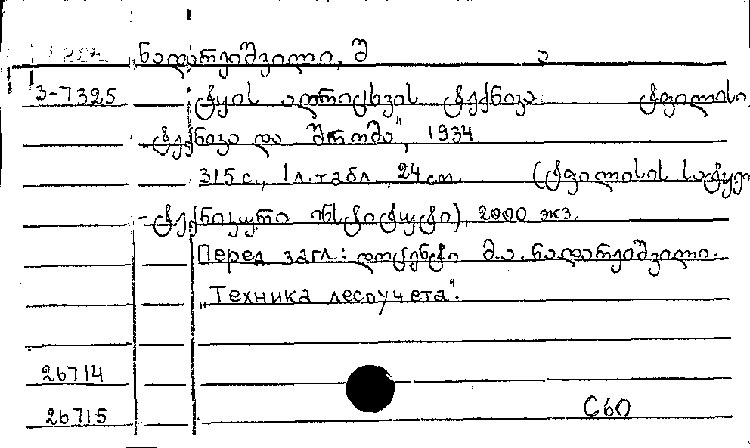 ნადარეიშვილი, შ
3-7325 ტყის აღრიცხვის ტექნიკა ტფილისი
"ტექნიკა და შრომა", 1934
315 с., 1 л. табл 24 см (ტფილისის სატყეო
ტექნიკური ინსტიტუტი), 2000 экз.
Перед загл: დოცენტი შ.ა. ნადარეიშვილი.
"Техника лесоучета".
26714
26715 С60